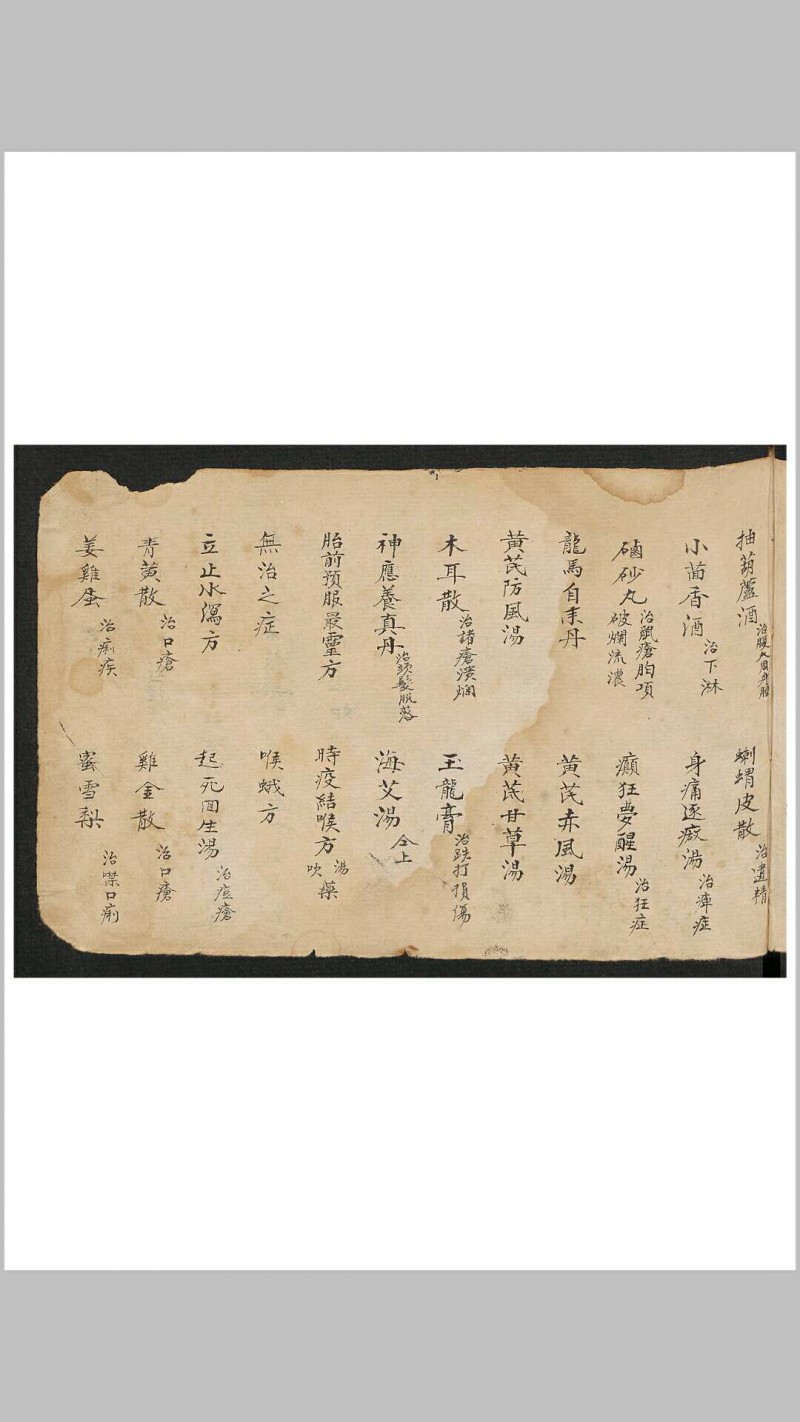 抽葫蘆酒 治腹大周身腫
蝲蝟皮散 治遺精
小茴香酒 治下淋
身痛逐瘀湯 治痺症
硇砂丸 治鼠瘡脖項破爛流濃
癲狂夢醒湯 治狂症
龍馬自來丹
黃芪赤風湯
黃芪防風湯
黃芪甘草湯
木耳散 治諸瘡潰爛
玉龍膏 治跌打損傷
神應養真丹 治頭髮脫落
海艾湯 仝上
胎前預服最靈方
時疫結喉方 湯吹藥
無治之症
喉蛾方
立止水瀉方
起死回生湯 治痘瘡
青黃散 治口瘡
雞金散 治口瘡
姜雞蛋 治痢疾
蜜雪梨 治噤口痢